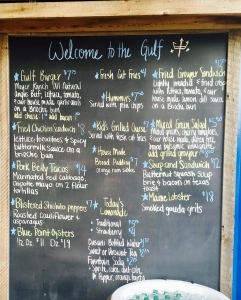 Welcome to the Gulf
Gulf Burger
Meyer Ranch All Natural
Angus Beef, lettuce, tomato,
& our house made garlic aioli
on a Brioche bun
add cheese add bacon
Fried Chicken Sandwich
lettuce, tomatoes & spicy
buttermilk sauce on a
brioche bun
Pork Belly Tacos $14
Marinated red cabbage
Chipotle mayo on 2 flour
tortillas
Blistered Shishito peppers
Roasted Cauliflower &
asparagus
Blue Point Oysters
1/2 Dz $11 Dz $19
Fresh Cut Fries
Hummus
Served with pita chips
Kid's Grilled Cheese
Served with fries
House Made
Bread Pudding $7
Today's
Lemonade
Traditional
Strawberry
Saratoga Bottled Water
Sweet or Unsweet Tea
Fountain Soda
Sprite, coke, diet coke,
Dr. Pepper, orange
Fried Grouper Sandwich
Lightly breaded & fried
lettuce, tomato, & our
house made lemon dill sauce
on a Brioche bun
Mixed Green Salad
Mixed greens, cherry tomatoes,
& our house made
vinaigrette
add grilled grouper
Soup and Sandwich $12
Butternut Squash Soup
brie & bacon on texas
toast
Maine Lobster $18
Smoked gouda grits